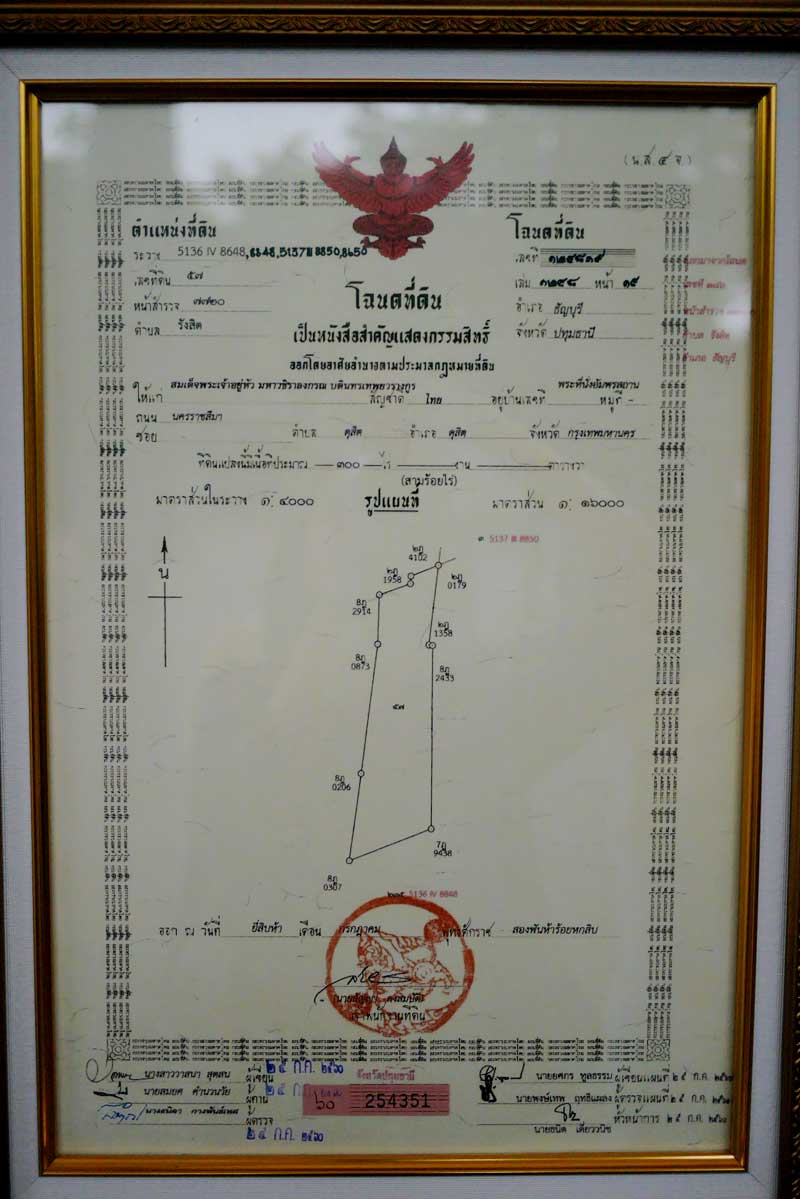 (น.ส. ๔ จ.)
ตำแหน่งที่ดิน
ระวาง 5136 IV 8648, 8848, 5137 III 8850, 8650
เลขที่ดิน ๕๗
หน้าสำรวจ ๗๗๒๐
ตำบล รังสิต
โฉนดที่ดิน
เลขที่ ๑๒๙๘๑๙
เล่ม ๑๒๙๘ หน้า ๑๙
อำเภอ ธัญบุรี
จังหวัด ปทุมธานี
โฉนดที่ดิน
เป็นหนังสือสำคัญแสดงกรรมสิทธิ์
ออกโดยอาศัยอำนาจตามประมวลกฎหมายที่ดิน
ให้แก่ สมเด็จพระเจ้าอยู่หัว มหาวชิราลงกรณ บดินทรเทพยวรางกูร สัญชาติ ไทย อยู่บ้านเลขที่ พระที่นั่งอัมพรสถาน หมู่ที่ -
ถนน นครราชสีมา
ซอย ตำบล ดุสิต อำเภอ ดุสิต จังหวัด กรุงเทพมหานคร
ที่ดินแปลงนี้มีเนื้อที่ประมาณ ๓๐๐ ไร่ งาน ตารางวา
(สามร้อยไร่)
มาตราส่วนในระวาง ๑:๔๐๐๐ รูปแผนที่ มาตราส่วน ๑:๑๖๐๐๐
5137 III 8850
น
2ฎ
4102
2ฎ
1958
2ฎ
0179
8ฎ
2914
2ฎ
1358
8ฎ
0873
8ฎ
2433
๕๗
8ฎ
0206
7ฎ
9438
8ฎ
0307
5136 IV 8848
ออก ณ วันที่ ยี่สิบห้า เดือน กรกฎาคม พุทธศักราช สองพันห้าร้อยหกสิบ
เจ้าพนักงานที่ดิน
นางสาววาสนา สุดสน ผู้เขียน ๒๕ ก.ค. ๒๕๖๐
นายสมยศ คำนวนวัย ผู้ทาน ๒๕ ก.ค.
ผู้ตรวจ ๒๕ ก.ค. ๒๕๖๐
จังหวัดปทุมธานี
๖๐ 254351
นายยศกร ทูลธรรม ผู้เขียนแผนที่ ๒๕ ก.ค.
นายพงษ์เทพ ฤทธิแผลง ผู้ตรวจแผนที่ ๒๕ ก.ค.
หัวหน้าการ ๒๕ ก.ค.
นายธนิต เดี่ยววนิช